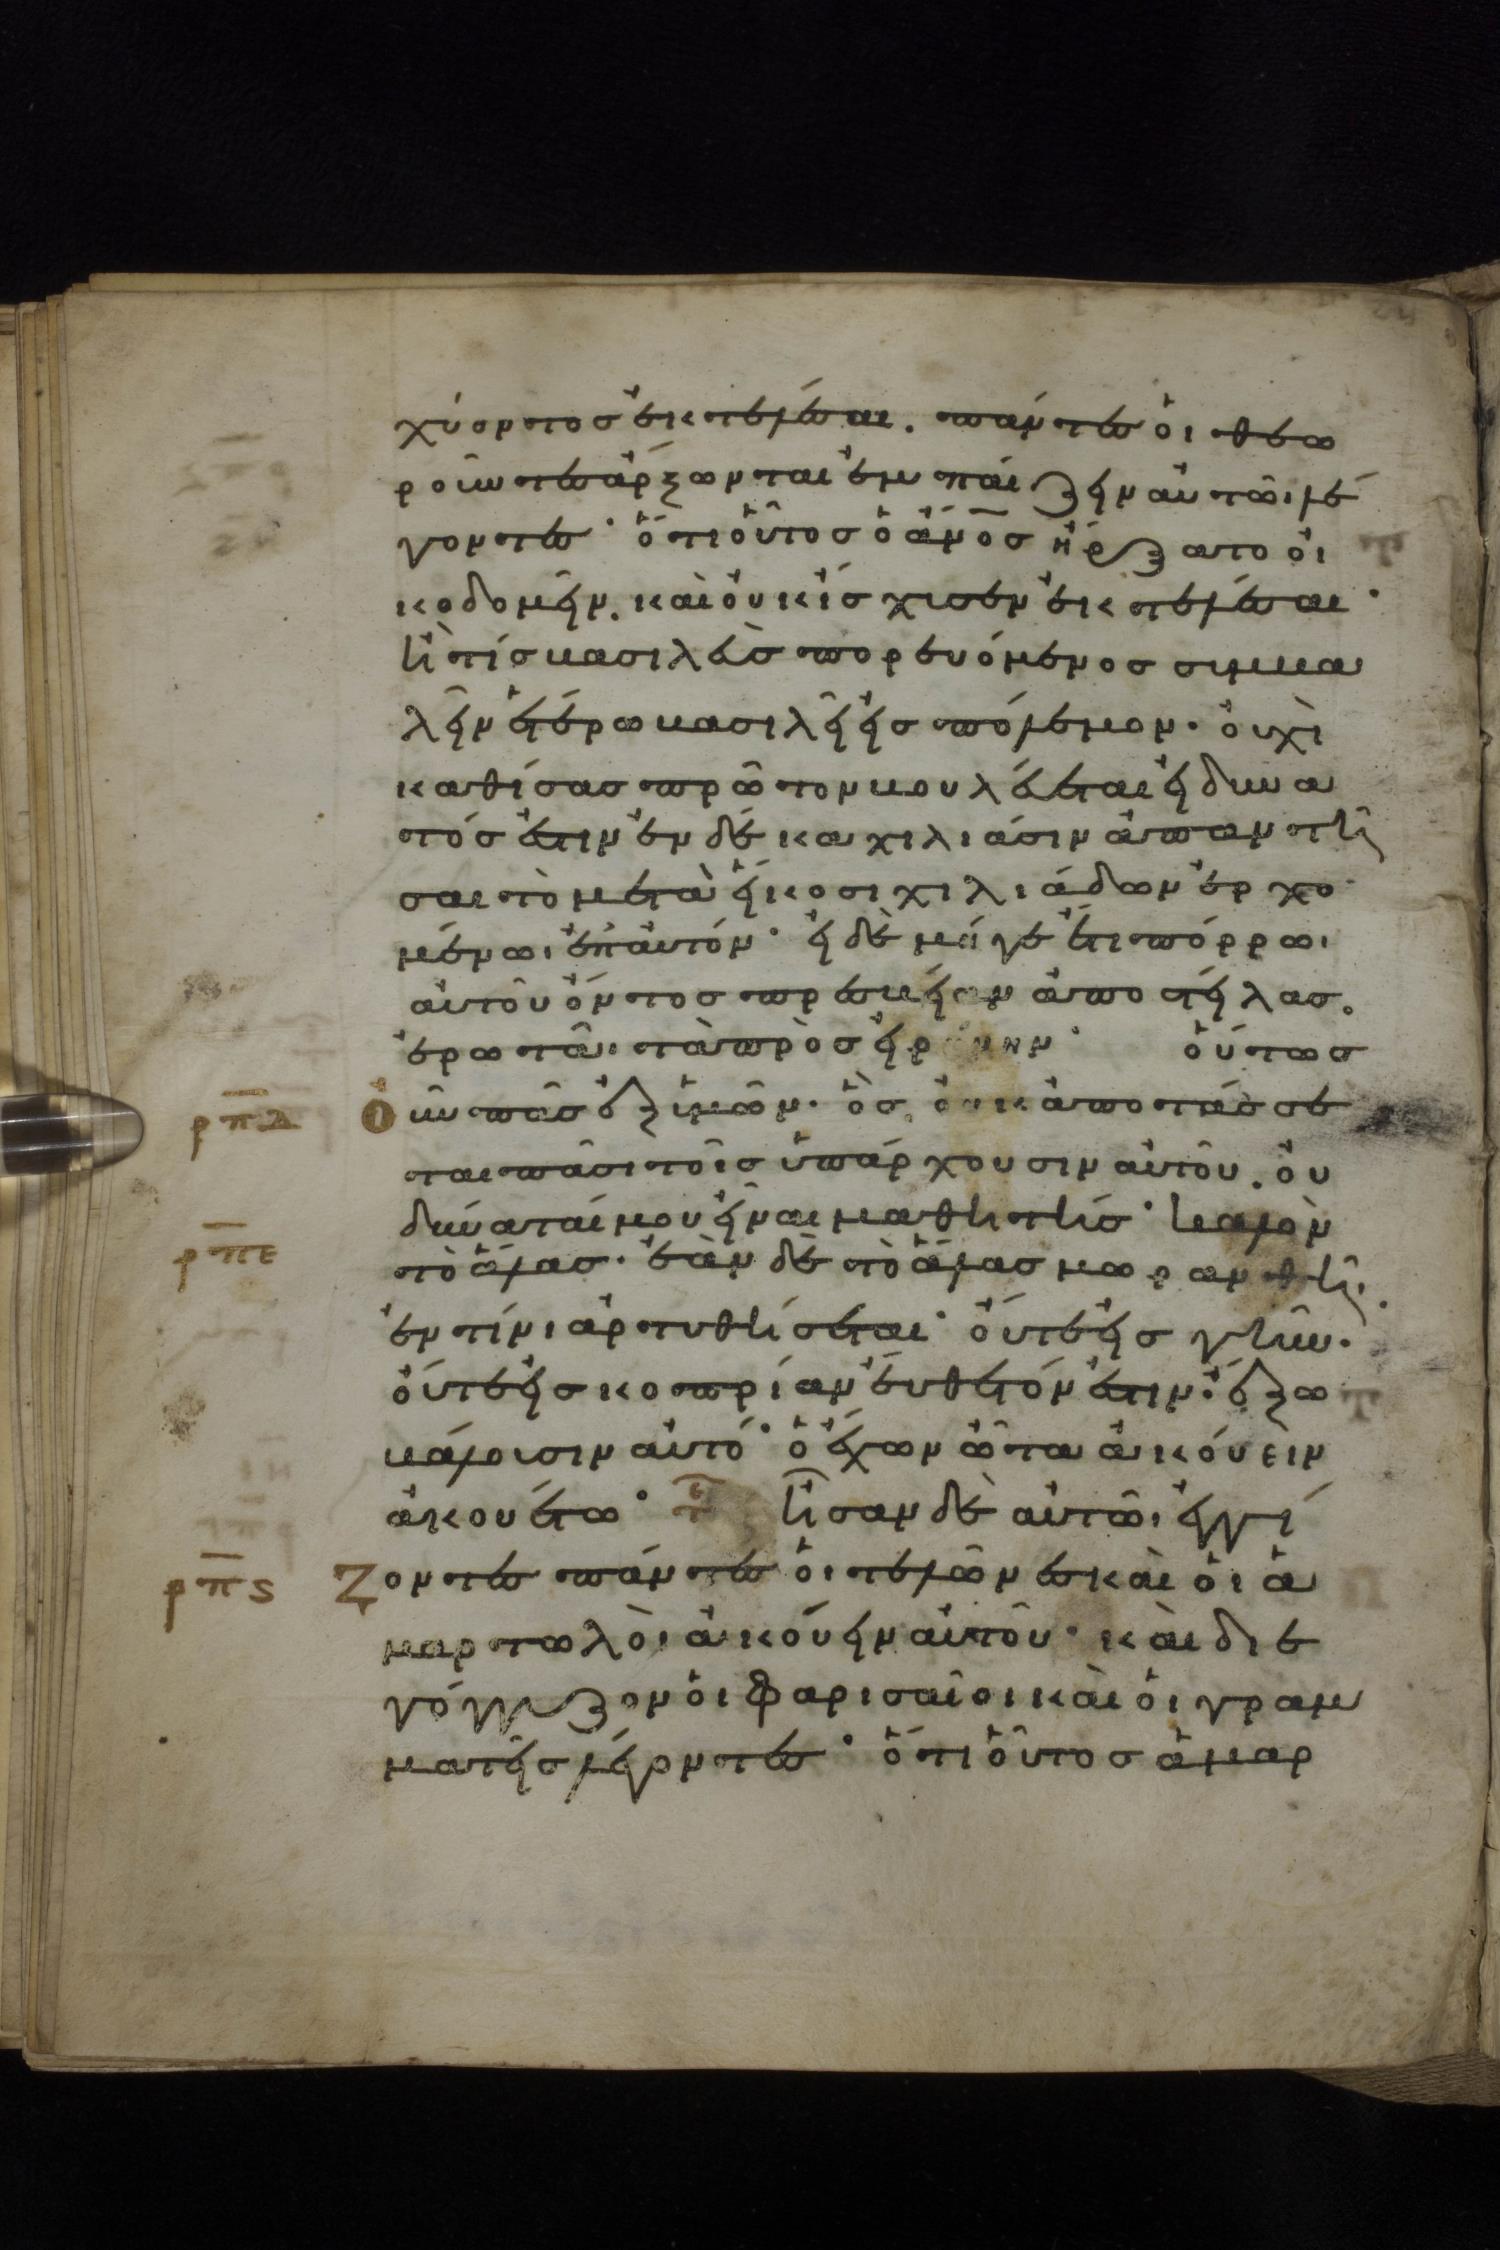 χύοντος ἐκτελέσαι. πάντες ὁι θεω
ροῦντες ἄρξωνται ἐμπαίζειν αὐτῶι λέ
γοντες· ὅτι οὗτος ὁ ἄν̅ο̅ς ἤρξατο οἰ
κοδομεῖν. καὶ οὐκ ἴσχισεν ἐκτελέσαι·
ἢ τίς βασιλεὺς πορευόμενος συμβα
λεῖν ἑτέρω βασιλεῖ εἰς πόλεμον· οὐχὶ
καθίσας πρῶτον βουλεύεται εἰ δυνα
τός ἐστιν ἐν δέκα χιλιάσιν ἀπαντῆ
σαι τὸ μετὰ εἴκοσι χιλιάδων ἐρχο
μένωι ἐπ αὐτόν· εἰ δὲ μήγε ἔτι πόρρωι
αὐτοῦ ὄντος πρεσβείαν ἀποστείλας.
ἐρωτᾶι τὰ πρὸς εἰρήνην· οὕτως
ρπδ ὁ οὖν πᾶς ἐξ ὑμῶν· ὃς οὐκ ἀποτάσσε
ται πᾶσι τοῖς ὑπάρχουσιν αὐτοῦ. οὐ
δύναταί μου εἶναι μαθητής· καλὸν
ρπε τὸ ἅλας· ἐὰν δὲ τὸ ἅλας μωρανθῆ.
ἐν τίνι ἀρτυθήσεται· οὔτε εἰς γῆν·
οὔτε εἰς κοπρίαν εὔθετόν ἐστιν· ἔξω
βάλουσιν αὐτό· ὁ ἔχων ὦτα ἀκούειν
ἀκουέτω· ἦσαν δὲ αὐτῶι ἐγγί
ρπς ζοντες πάντες ὁι τελῶνες καὶ ὁι ἁ
μαρτωλὸι ἀκούειν αὐτοῦ· καὶ διε
γόγγυζον ὁι φαρισαῖοι καὶ ὁι γραμ
ματεῖς λέγοντες· ὅτι οὗτος ἁμαρ